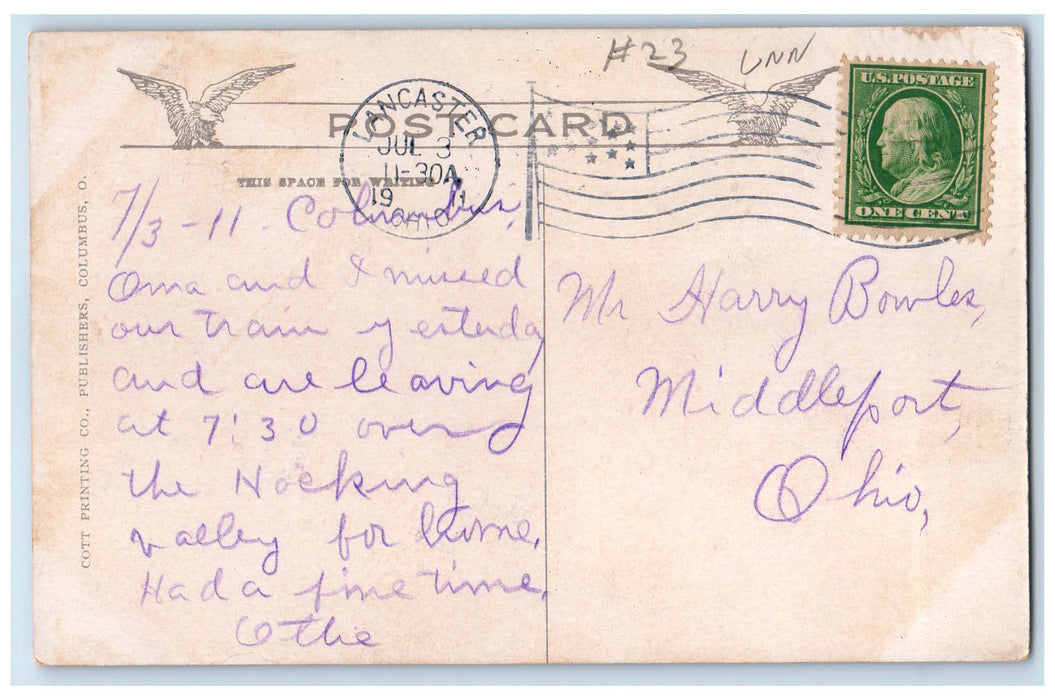 #23 UNN
U.S. POSTAGE
ONE CENT
POST CARD
LANCASTER
JUL 3
11-30A
1911
OHIO
THIS SPACE FOR WRITING
7/3-11. Columbus,
Oma and I missed
our train yesterday
and are leaving
at 7:30 over
the Hocking
valley for home.
Had a fine time.
Othe
Mr Harry Bowles,
Middleport,
Ohio,
COTT PRINTING CO., PUBLISHERS, COLUMBUS, O.